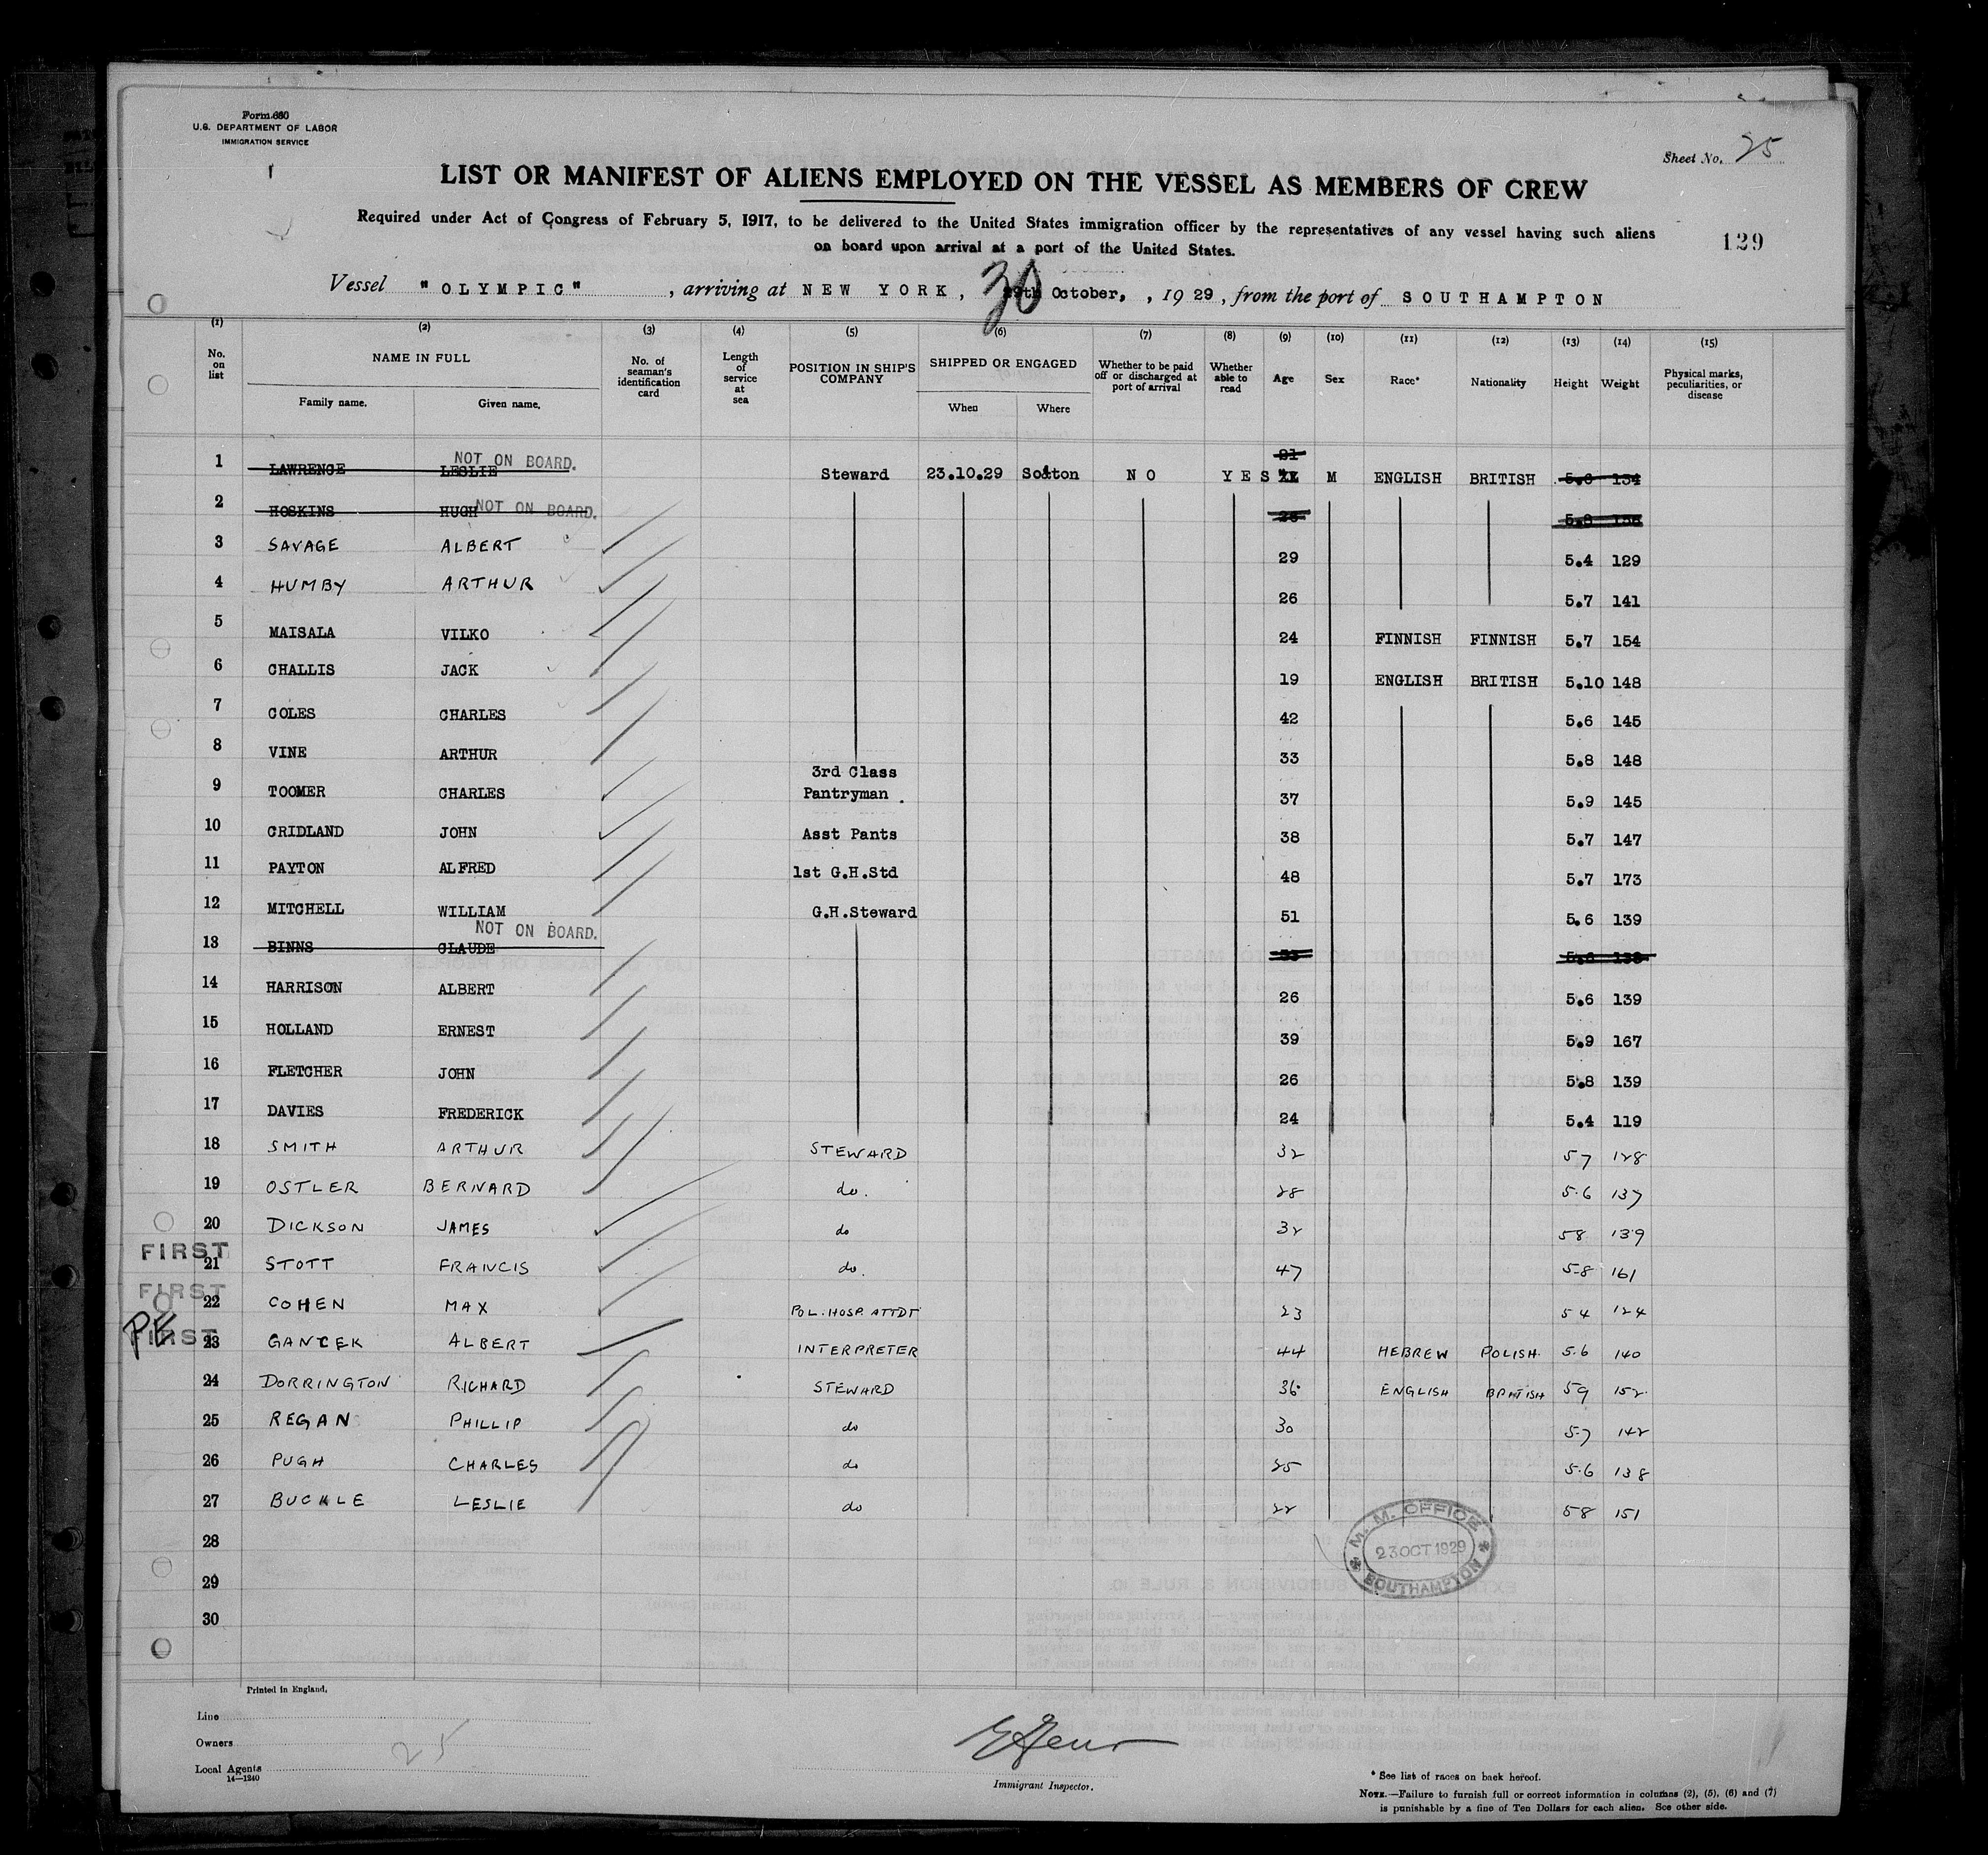 Form 680
U.S. DEPARTMENT OF LABOR
IMMIGRATION SERVICE
Sheet No. 25
LIST OR MANIFEST OF ALIENS EMPLOYED ON THE VESSEL AS MEMBERS OF CREW
Required under Act of Congress of February 5, 1917, to be delivered to the United States immigration officer by the representatives of any vessel having such aliens
on board upon arrival at a port of the United States.
129
Vessel "OLYMPIC", arriving at NEW YORK, 30 October, , 1929, from the port of SOUTHAMPTON
(1) (2) (3) (4) (5) (6) (7) (8) (9) (10) (11) (12) (13) (14) (15)
No. on list NAME IN FULL Family name. Given name. No. of seaman's identification card Length of service at sea POSITION IN SHIP'S COMPANY SHIPPED OR ENGAGED When Where Whether to be paid off or discharged at port of arrival Whether able to read Age Sex Race* Nationality Height Weight Physical marks, peculiarities, or disease
1 LAWRENCE LESLIE NOT ON BOARD. Steward 23.10.29 Soton NO YES 21 M ENGLISH BRITISH 5.6 134
2 HOSKINS HUGH NOT ON BOARD. 5.8
3 SAVAGE ALBERT 29 5.4 129
4 HUMBY ARTHUR 26 5.7 141
5 MAISALA VILKO 24 FINNISH FINNISH 5.7 154
6 CHALLIS JACK 19 ENGLISH BRITISH 5.10 148
7 COLES CHARLES 42 5.6 145
8 VINE ARTHUR 33 5.8 148
9 TOOMER CHARLES 3rd Class Pantryman. 37 5.9 145
10 CRIDLAND JOHN Asst Pants 38 5.7 147
11 PAYTON ALFRED 1st G.H.Std 48 5.7 173
12 MITCHELL WILLIAM G.H.Steward 51 5.6 139
13 BINNS CLAUDE NOT ON BOARD. 5.6
14 HARRISON ALBERT 26 5.6 139
15 HOLLAND ERNEST 39 5.9 167
16 FLETCHER JOHN 26 5.8 139
17 DAVIES FREDERICK 24 5.4 119
18 SMITH ARTHUR STEWARD 32 5 7 128
19 OSTLER BERNARD do. 28 5.6 137
20 DICKSON JAMES do 32 5 8 139
FIRST 21 STOTT FRANCIS do. 47 5-8 161
FIRST 22 COHEN MAX POL. HOSP. ATTDT 23 5 4 124
PE FIRST 23 GANCEK ALBERT INTERPRETER 44 HEBREW POLISH. 5.6 140
24 DORRINGTON RICHARD STEWARD 36 ENGLISH BRITISH 5 9 152
25 REGAN PHILLIP do 30 5.7 142
26 PUGH CHARLES do 25 5.6 138
27 BUCKLE LESLIE do 22 5 8 151
28
29
30
M. M. OFFICE
23 OCT 1929
SOUTHAMPTON
Printed in England.
Line
Owners
Local Agents
14—1240
25
Immigrant Inspector.
* See list of races on back hereof.
NOTE.—Failure to furnish full or correct information in columns (2), (5), (6) and (7)
is punishable by a fine of Ten Dollars for each alien. See other side.